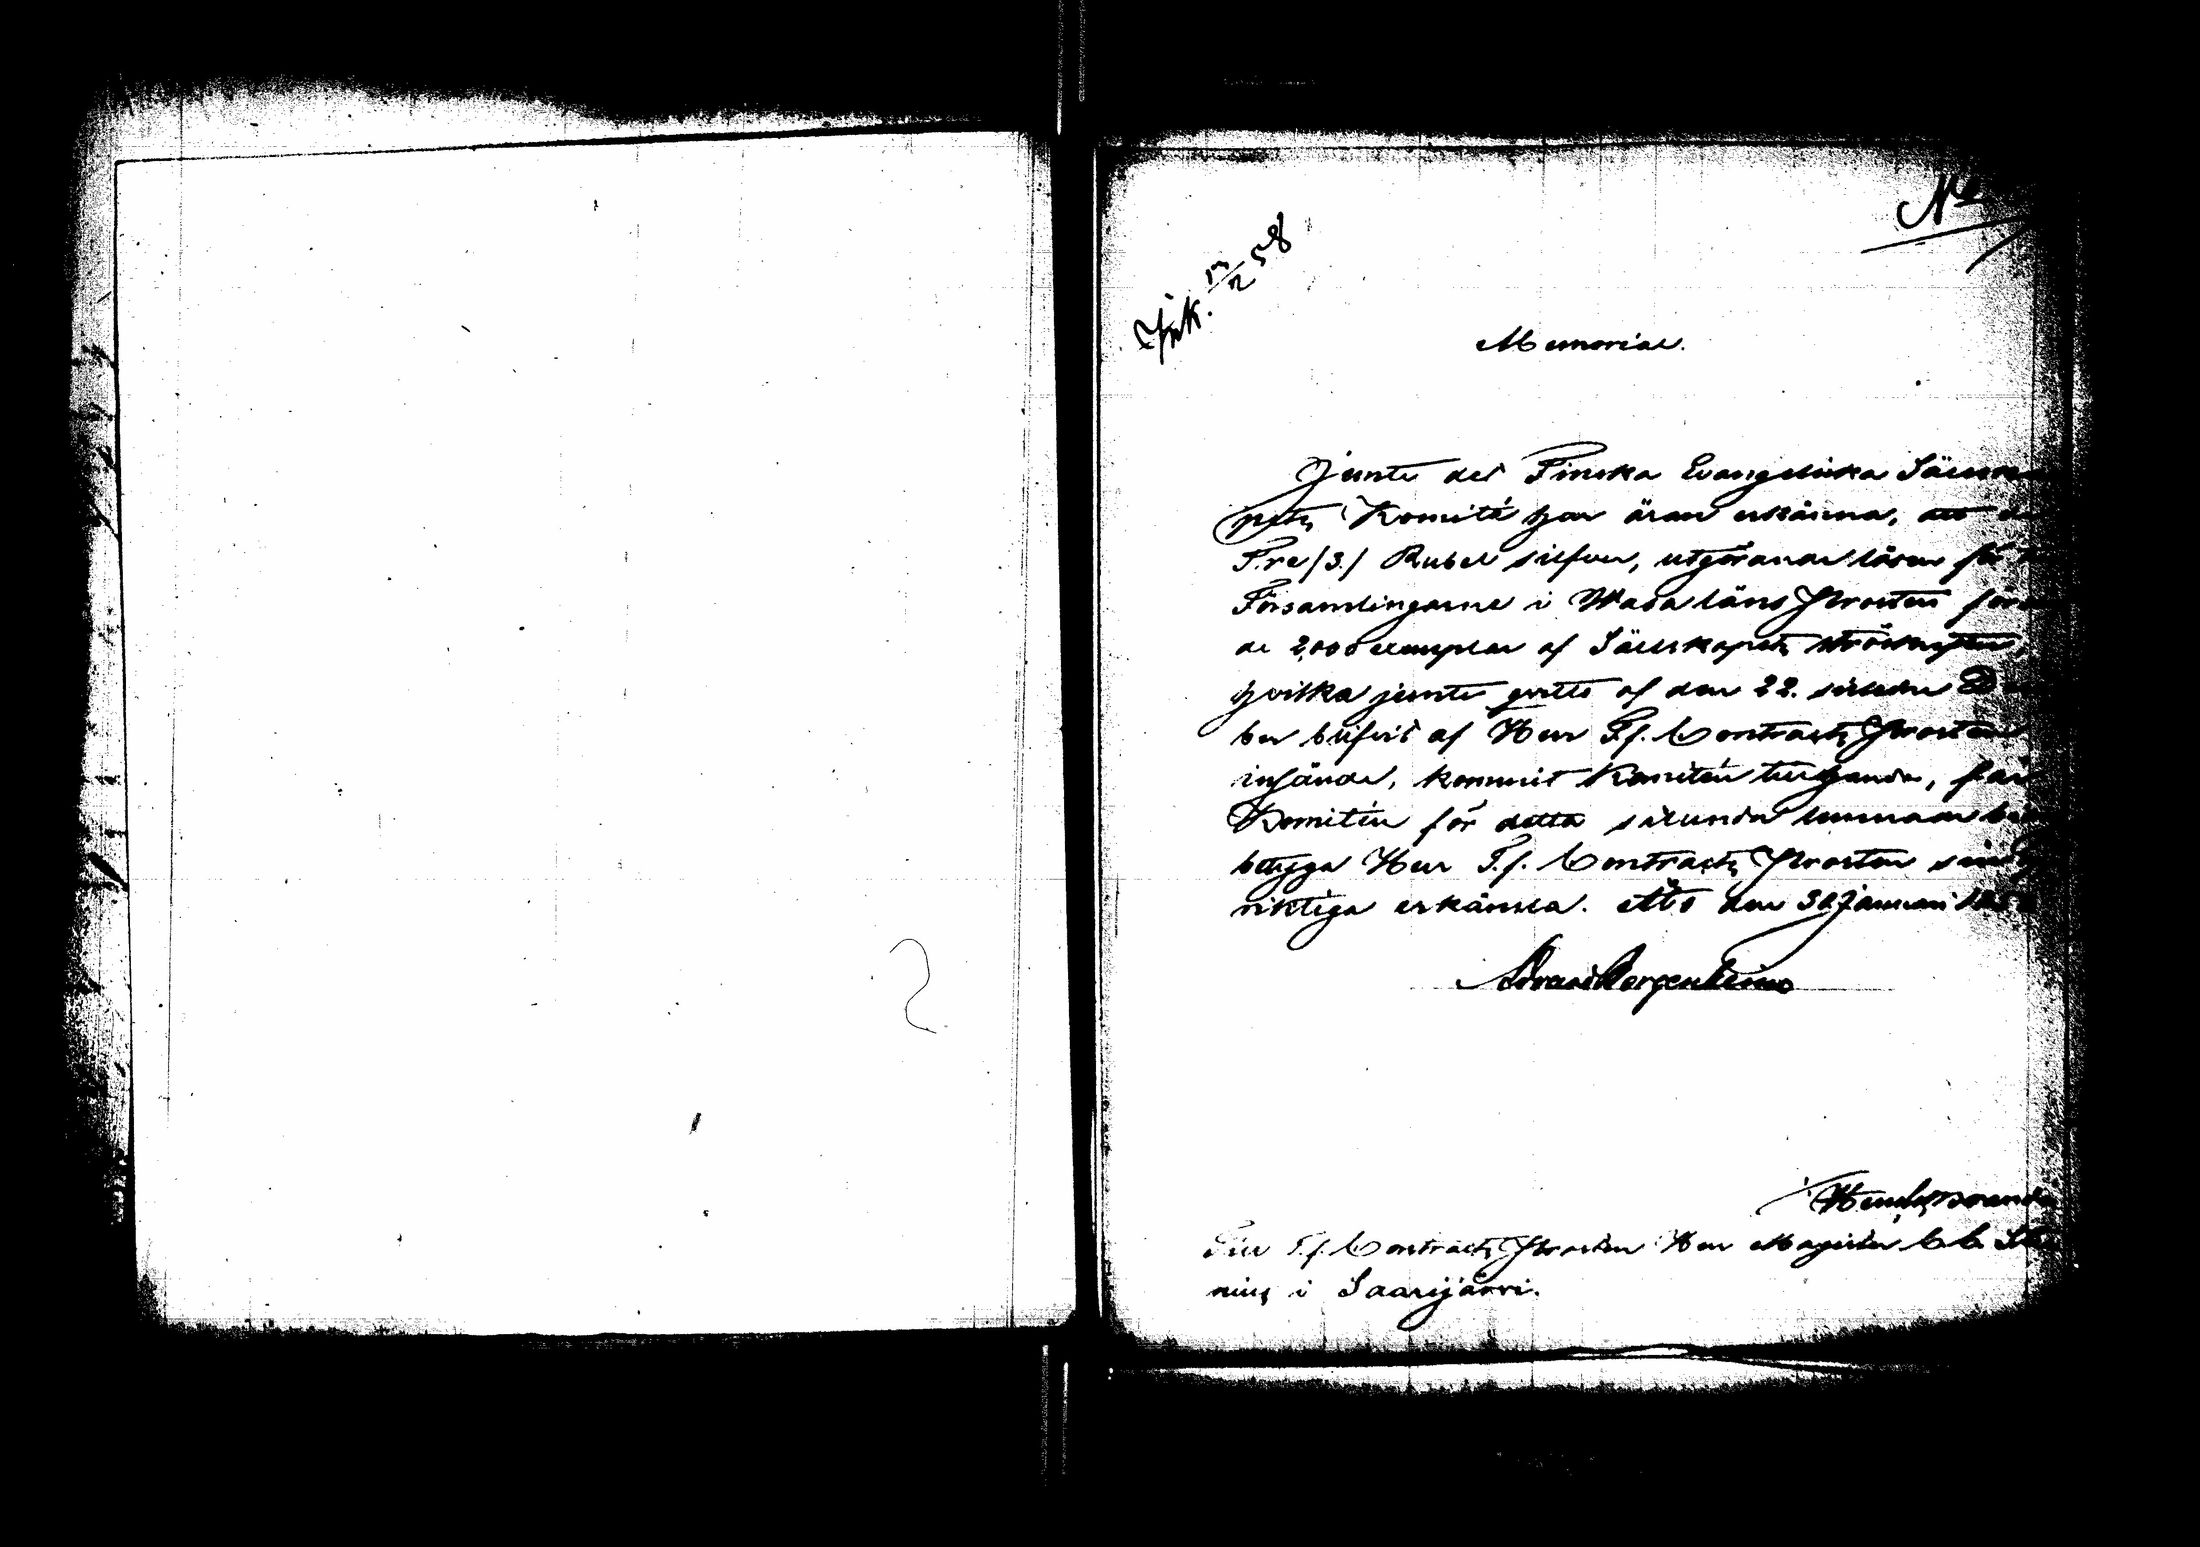 No
Ink. 13/2 58
Memorial.
Jemte det Finska Evangeliska Sällska
pets Komité har äran erkänna, att de
Tre /3./ Rubel silfver, utgörande lösen för
Församlingarne i Wasa läns Prosteri
de 2,000 exemplar af Sällskapets ströskrifter,
hvilka jemte qvitto af den 22. sistledne De
ber blifvit af Herr T.f. Contracts Prosten
insände, kommit Komitén tillhanda, får
Komitén för detta sålunda lemnade
betyga Herr T.f. Contracts Prosten sin
riktiga erkänsla. Åbo den 30 Januari 185
Edvard Bergenheim
Till T.f. Contracts Prosten Herr Magister C. C.
nius i Saarijärvi.